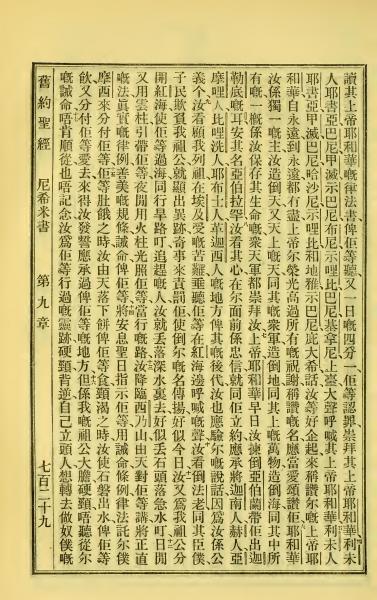 讀其上帝耶和華嘅律法書俾佢等聽又一日嘅四分一佢等認罪崇拜其上帝耶和華利未
人耶書亞巴尼甲滅示巴尼布尼示哩比巴尼基拿尼上臺大聲呼喊其上帝耶和華利未人
耶書亞甲滅巴尼哈沙尼示哩比和地雅示巴尼庇大希話汝等好企起來稱讚尔嘅上帝耶
和華自永遠到永遠都冇盡上帝尔榮光高過所有嘅祝謝稱讚嘅名應當愛頌讚佢耶和華
汝係獨一嘅主汝造倒天又天上嘅天同其嘅衆軍造倒地同其上嘅萬物造倒海同其中所
有嘅一嘅係汝保存其生命嘅衆天軍都崇拜汝上帝耶和華早日汝揀倒亞伯蘭帶佢出迦
勒底嘅耳安其名亞伯拉罕汝看其心在尔面前係忠信就同佢立約應承將迦南人赫人亞
摩哩人比哩洗人耶布士人革迦西人嘅地方俾其嘅後代汝也應驗尔嘅說話因爲汝係公
義今汝看顧我列祖在埃及受嘅苦難垂聽佢等在紅海邊呼喊嘅聲汝看倒法老同其臣僕
子民欺負我祖公就顯出異跡奇事來責罰佢使倒尔嘅名傳揚好似今日汝又爲我祖公分
開紅海使佢等過海同行旱路叮追趕嘅人汝就丢落深水裏去好似丢石頭落急水叮日間
又用雲柱引帶佢等夜間用火柱光照佢等當行嘅路汝降臨西乃山由天對佢等講將正直
嘅法眞實嘅律例善美嘅規條誡命俾佢等將安息聖日指示佢等用誡命條例律法託尔僕
摩西來分付佢等佢等肚餓之時汝由天落下餅俾佢等食頸渴之時汝使石磐出水俾佢等
飲又分付佢等愛去來得汝發誓應承過俾佢等嘅地方但係我嘅祖公大膽硬頸唔聽從尔
嘅誡命唔肯順從也唔記念汝爲佢等行過嘅靈跡硬頸背逆自己立頭人想轉去做奴僕嘅
舊約聖經 尼希米書 第九章 七百二十九